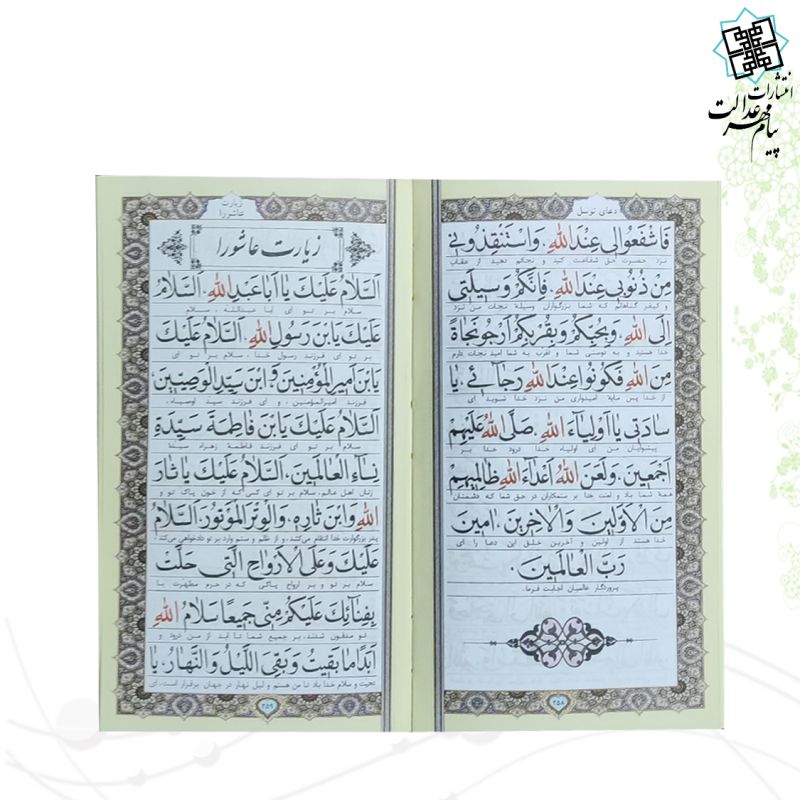 انتشارات
پیام مهر عدالت
دعای توسل
فَاشْفَعُوا لِی عِنْدَ اللهِ، وَاسْتَنْقِذُونِی
نزد حضرت حق شفاعت کنید و نجاتم دهید از عقاب
مِنْ ذُنُوبِی عِنْدَ اللهِ، فَاِنَّکُمْ وَسِیلَتِی
و کیفر گناهانم که شما بزرگواران وسیله نجات من نزد
اِلَی اللهِ، وَبِحُبِّکُمْ وَبِقُرْبِکُمْ اَرْجُو نَجَاةً
خدا هستید و به دوستی شما و تقرب به شما امید نجات دارم
مِنَ اللهِ فَکُونُوا عِنْدَ اللهِ رَجَائِی، یَا
از خدا پس مایه امیدواری من نزد خدا شوید ای
سَادَتِی یَا اَوْلِیَاءَ اللهِ، صَلَّی اللهُ عَلَیْهِمْ
پیشوایان من ای اولیاء خدا درود خدا بر
اَجْمَعِینَ، وَلَعَنَ اللهُ اَعْدَاءَ اللهِ ظَالِمِیهِمْ
همه شما باد و لعنت خدا بر ستمکاران در حق شما که دشمنان
مِنَ الْاَوَّلِینَ وَالْاٰخِرِینَ، اٰمِینَ
خدا هستند از اولین و آخرین خلق این دعا را ای
رَبَّ الْعَالَمِینَ.
پروردگار عالمیان اجابت فرما.
۲۵۸
زیارت
عاشورا
زیارت عاشورا
اَلسَّلَامُ عَلَیْکَ یَا اَبَا عَبْدِ اللهِ، اَلسَّلَامُ
سلام بر تو ای ابا عبدالله، سلام
عَلَیْکَ یَابْنَ رَسُولِ اللهِ، اَلسَّلَامُ عَلَیْکَ
بر تو ای فرزند رسول خدا، سلام بر تو ای
یَابْنَ اَمِیرِ الْمُؤْمِنِینَ وَابْنَ سَیِّدِ الْوَصِیِّینَ،
فرزند امیرالمؤمنین، و ای فرزند سید اوصیاء،
اَلسَّلَامُ عَلَیْکَ یَابْنَ فَاطِمَةَ سَیِّدَةِ
سلام بر تو ای فرزند فاطمۀ زهراء سیدۀ
نِسَاءِ الْعَالَمِینَ، اَلسَّلَامُ عَلَیْکَ یَا ثَارَ
زنان اهل عالم، سلام بر تو ای کسی که از خون پاک تو و
اللهِ وَابْنَ ثَارِهِ، وَالْوِتْرَ الْمَوْتُورَ، اَلسَّلَامُ
پدر بزرگوارت خدا انتقام می‌کشد، و از ظلم و ستم وارد بر تو دادخواهی می‌کند
عَلَیْکَ وَعَلَی الْاَرْوَاحِ الَّتِی حَلَّتْ
سلام بر تو و بر ارواح پاکی که در حرم مطهرت با
بِفِنَائِکَ عَلَیْکُمْ مِنِّی جَمِیعًا سَلَامُ اللهِ
تو مدفون شدند، بر جمیع شما تا ابد از من درود و
اَبَدًا مَا بَقِیتُ وَبَقِیَ اللَّیْلُ وَالنَّهَارُ، یَا
تحیت و سلام خدا باد تا من هستم و لیل نهار در جهان برقرار است، ای
۲۵۹